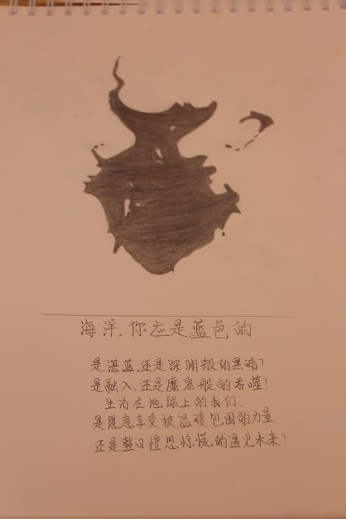 海洋，你应是蓝色的
是湛蓝，还是深渊般的黑暗？
是融入，还是魔鬼般的吞噬？
生活在地球上的我们，
是愿意享受被温暖包围的力量，
还是整日惶恐惊慌的遇见未来？